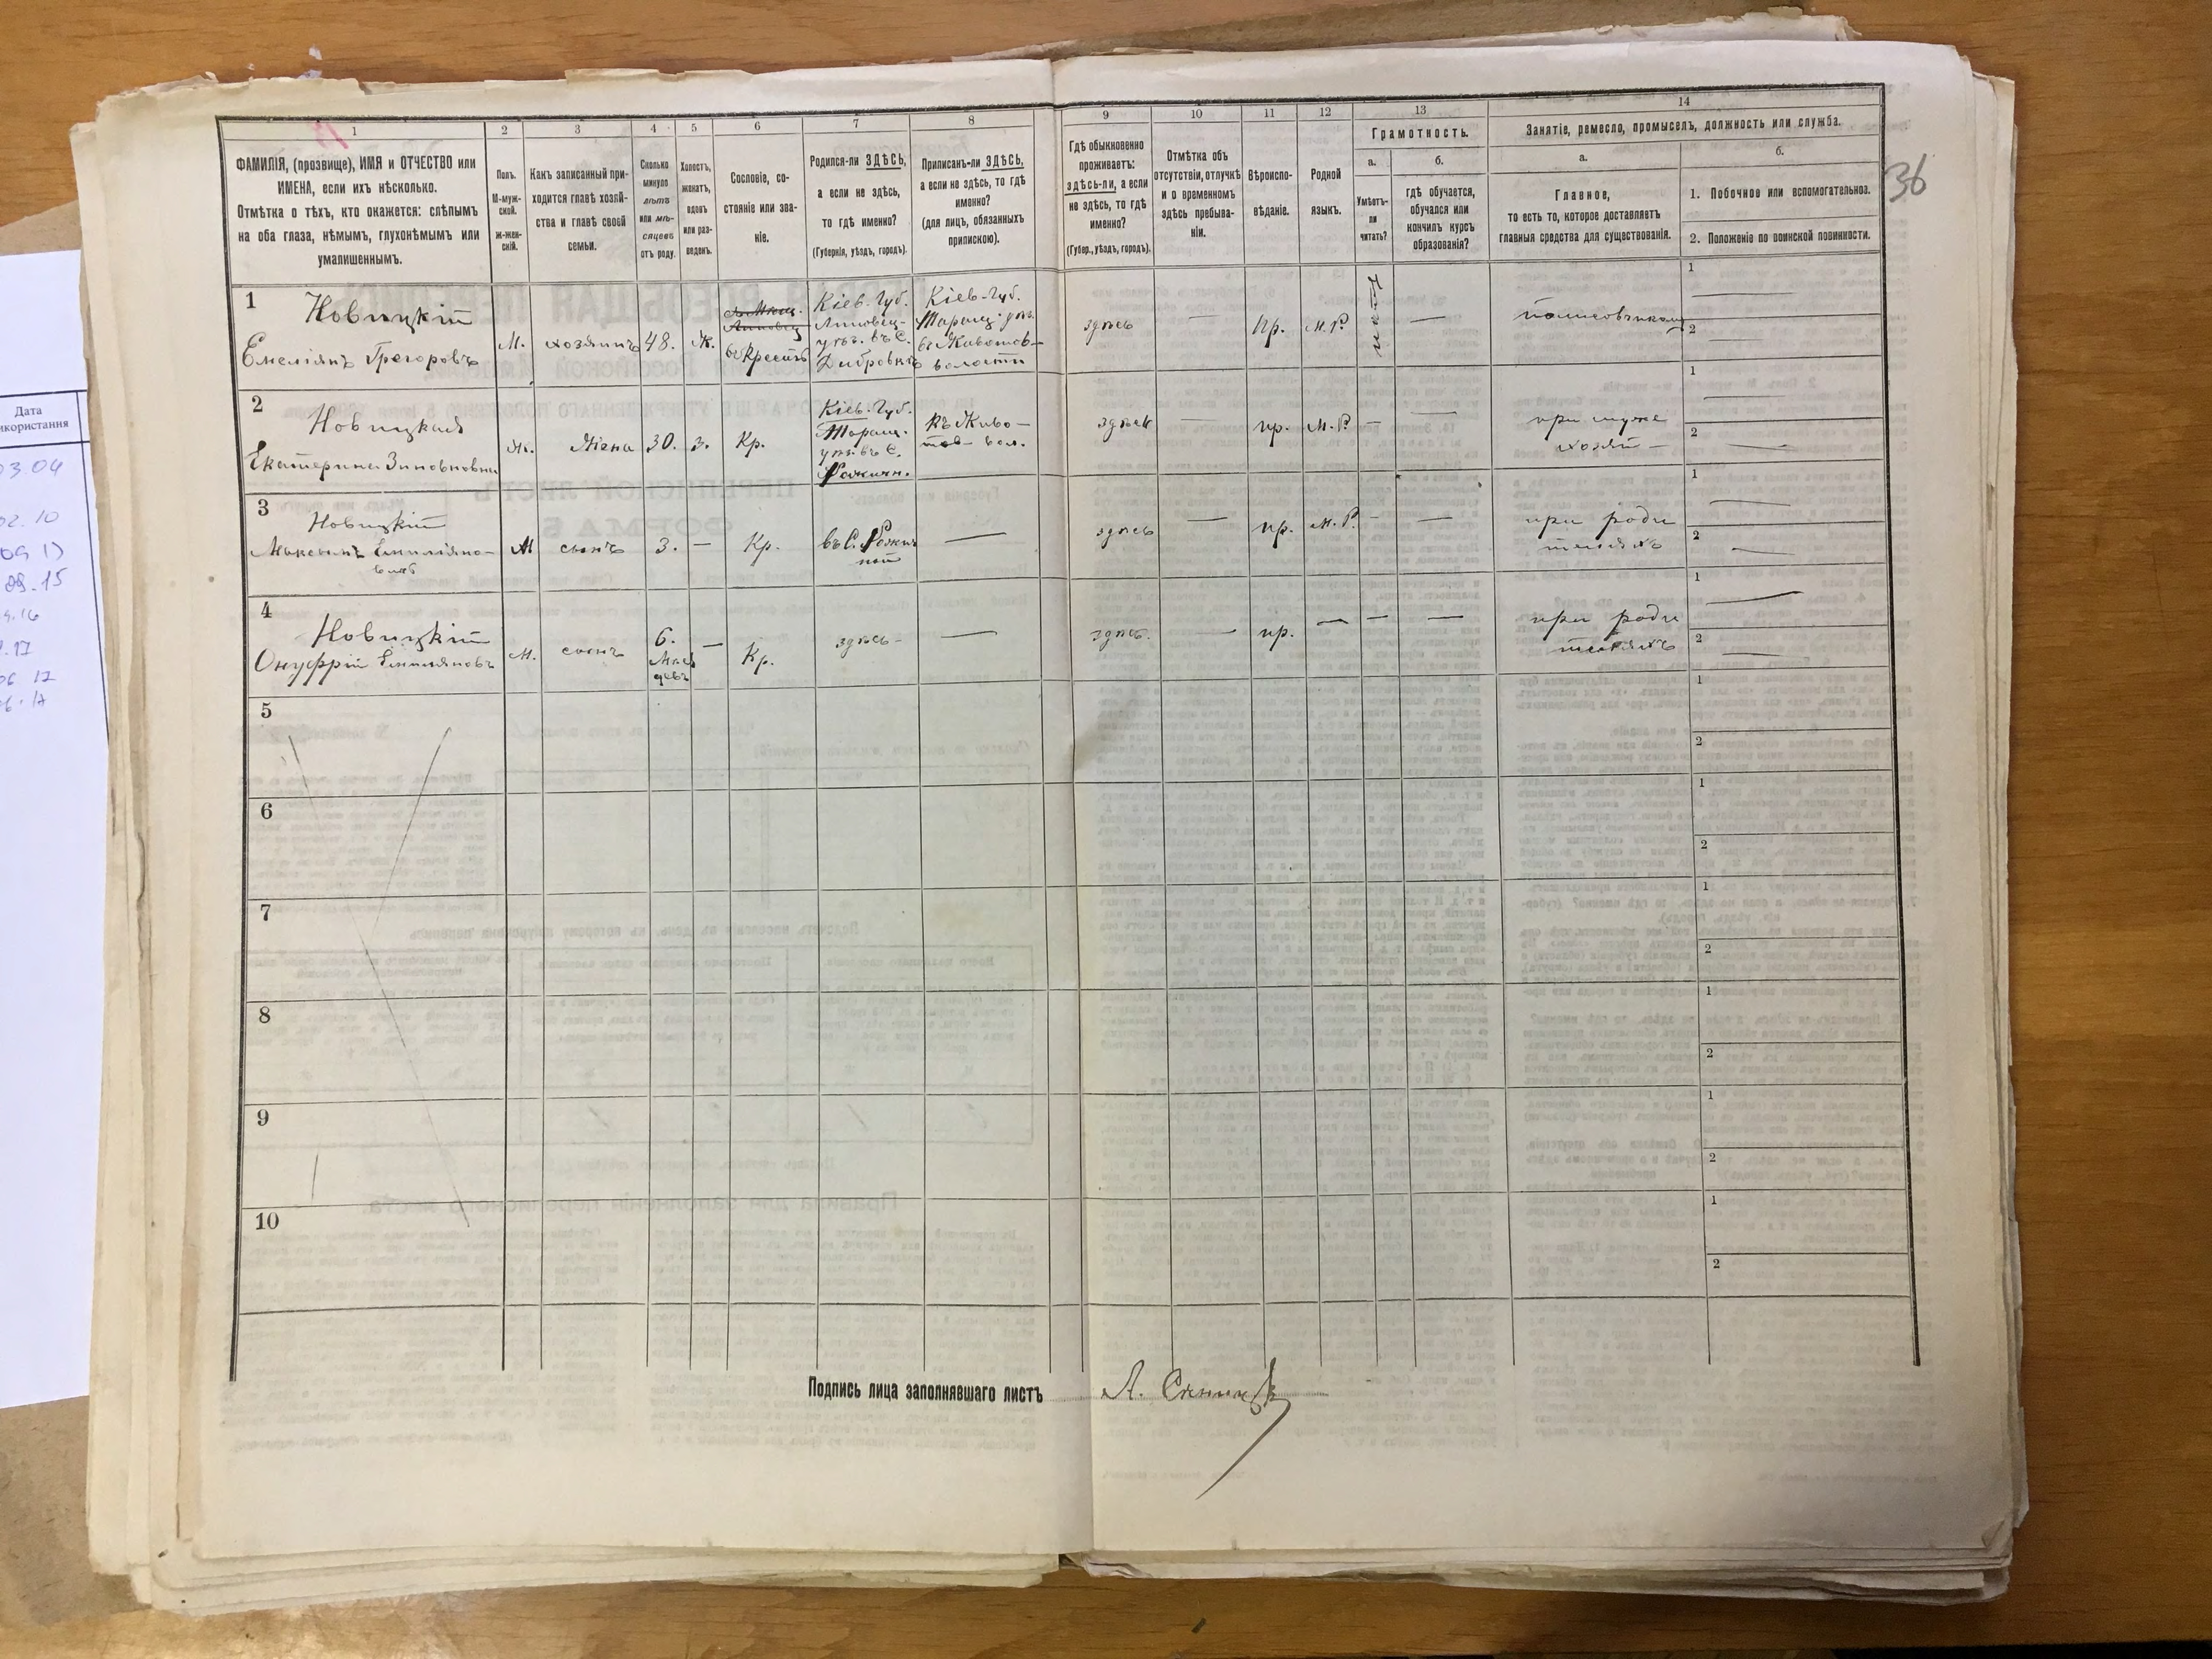 36
1
2
3
4
5
6
7
8
9
10
11
12
13
14
ФАМИЛІЯ, (прозвище), ИМЯ и ОТЧЕСТВО или
ИМЕНА, если ихъ нѣсколько.
Отмѣтка о тѣхъ, кто окажется: слѣпымъ
на оба глаза, нѣмымъ, глухонѣмымъ или
умалишеннымъ.
Полъ.
М-муж-
ской.
Ж-жен-
скій.
Какъ записанный при-
ходится главѣ хозяй-
ства и главѣ своей
семьи.
Сколько
минуло
лѣтъ
или мѣ-
сяцевъ
отъ роду.
Холостъ,
женатъ,
вдовъ
или раз-
веденъ.
Сословіе, со-
стояніе или зва-
ніе.
Родился-ли ЗДѢСЬ,
а если не здѣсь,
то гдѣ именно?
(Губернія, уѣздъ, городъ).
Приписанъ-ли ЗДѢСЬ,
а если не здѣсь, то гдѣ
именно?
(для лицъ, обязанныхъ
припискою).
Гдѣ обыкновенно
проживаетъ:
здѣсь-ли, а если
не здѣсь, то гдѣ
именно?
(Губер., уѣздъ, городъ).
Отмѣтка объ
отсутствіи, отлучкѣ
и о временномъ
здѣсь пребыва-
ніи.
Вѣроиспо-
вѣданіе.
Родной
языкъ.
Грамотность.
а.
Умѣетъ-
ли
читать?
б.
гдѣ обучается,
обучался или
кончилъ курсъ
образованія?
Занятіе, ремесло, промыселъ, должность или служба.
а.
Главное,
то есть то, которое доставляетъ
главныя средства для существованія.
б.
1. Побочное или вспомогательное.
2. Положеніе по воинской повинности.
1
Новицкій
Емеліянъ Грегоровъ
М.
хозяинъ
48.
Ж.
Кіев. Губ.
Липовец-
уѣз. въ С.
Дибровкѣ
Кіев. Губ.
Таращ. уѣз.
волости
здѣсь
—
Пр.
М.Р.
—
1
—
2
—
2
Новицкая
Екатерина Зиновиовна
Ж.
Жена
30.
з.
Кр.
Кіев. Губ.
Таращ.
уѣз. въ С.
Рожичн.
Къ Живо-
тов- вол.
здѣсь
пр.
М.Р.
—
—
при муже
хозяй—
1
—
2
—
3
Новицкій
Максымъ Емилiяно-
вичъ
М
сынъ
3.
—
Кр.
въ С. Рожич
ной
—
здѣсь
—
пр.
М.Р.
—
—
при роди
теляхъ
1
—
2
—
4
Новицкій
Онуфрій Емилияновъ
М.
сынъ
6.
Мѣся
цевъ
—
Кр.
здѣсь-
—
здѣсь.
—
пр.
—
—
—
при роди
теляхъ
1
—
2
—
5
1
2
6
1
2
7
1
2
8
1
2
9
1
2
10
1
2
Подпись лица заполнявшаго листъ
Дата
икористання
03.04
02.10